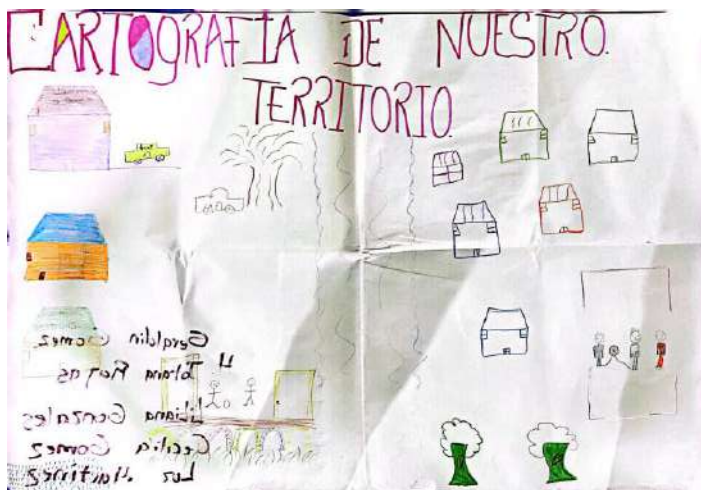 CARTOGRAFIA DE NUESTRO
TERRITORIO.
Geraldin Gomez
Liliana Gonzales
Cecilia Gomez
Luz Martinez